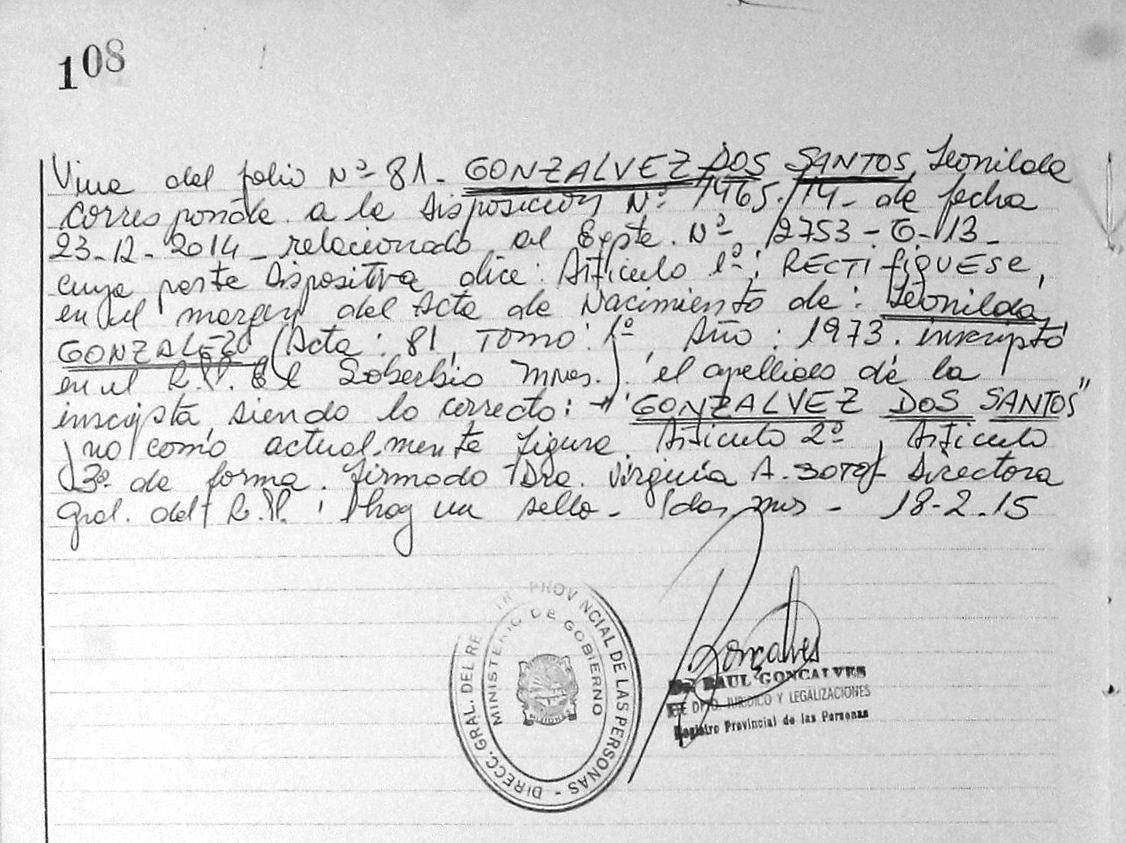 108
Viene del folio Nº 81. GONZALVEZ DOS SANTOS, Leonilda
corresponde a la Disposición Nº 1465/14 de fecha
23-12-2014 relacionado al Expte. Nº 12753-G-13-
cuya parte Dispositiva dice: Artículo 1º: RECTIFIQUESE,
en el margen del Acta de Nacimiento de: Leonilda
GONZALEZ (Acta: 81, Tomo: 1º, Año: 1973. inscripto
en el R.P. El Soberbio Mnes.), el apellido de la
inscripta, siendo lo correcto: "GONZALVEZ DOS SANTOS"
y no como actualmente figura. Artículo 2º, Artículo
3º de forma. Firmado Dra. Virginia A. Directora
Gral. del R.P. hay un sello. 18-2-15
DIRECC. GRAL. DEL RE PROVINCIAL DE LAS PERSONAS
MINISTERIO DE GOBIERNO
Goncalves
Dr. RAUL GONCALVES
DPTO. JURIDICO Y LEGALIZACIONES
Registro Provincial de las Personas